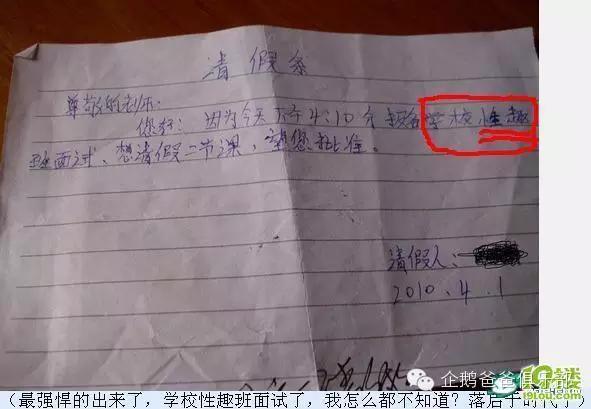 请假条
尊敬的老师:
您好! 因为今天下午4:10分 报名学校性趣
班面试、想请假二节课,望您批准。
请假人:
2010.4.1
企鹅爸爸俱乐部
19楼
19lou.com
(最强悍的出来了,学校性趣班面试了,我怎么都不知道?落后于时代了)